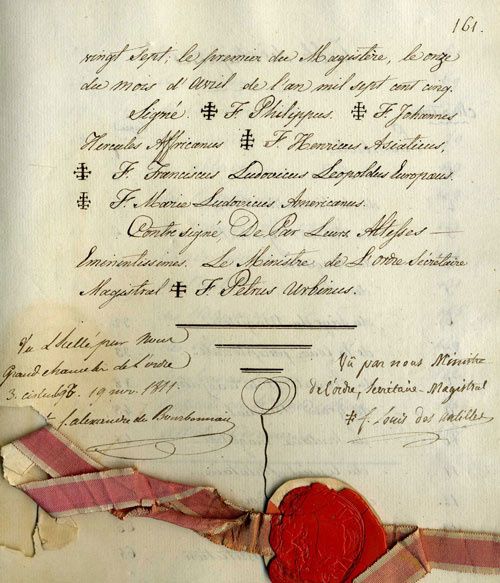 161.
vingt Sept; le premier du Magistère, le onze
du mois d'avril de l'an mil sept cent cinq.
Signé. ‡ F. Philippus. ‡ F. Johannes
Hercules Affricanus ‡ F. Henricus Asiaticus,
‡ F. Franciscus Ludovicus Leopoldus Europaus.
‡ F. Marie Ludovicus Americanus.
Contre signé, De Par Leurs Altesses —
Eminentissimes. Le Ministre de L'ordre Sécrétaire
Magistral ‡ F. Petrus Urbinus.
Vu & Scellé par nous
Grand chancelier de l'ordre
f. alexandre de Bourbonnais
Vû par nous Ministre
de l'ordre, Secrétaire-Magistral
‡ f. Louis des antilles